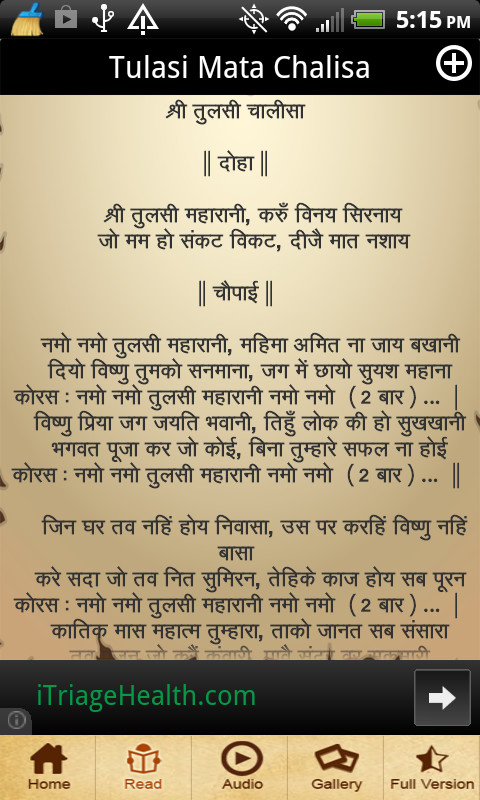 5:15 PM
Tulasi Mata Chalisa
श्री तुलसी चालीसा
|| दोहा ||
श्री तुलसी महारानी, करुँ विनय सिरनाय
जो मम हो संकट विकट, दीजै मात नशाय
|| चौपाई ||
नमो नमो तुलसी महारानी, महिमा अमित ना जाय बखानी
दियो विष्णु तुमको सनमाना, जग में छायो सुयश महाना
कोरस : नमो नमो तुलसी महारानी नमो नमो (2 बार) ... |
विष्णु प्रिया जग जयति भवानी, तिहुँ लोक की हो सुखखानी
भगवत पूजा कर जो कोई, बिना तुम्हारे सफल ना होई
कोरस : नमो नमो तुलसी महारानी नमो नमो (2 बार) ... ||
जिन घर तव नहिं होय निवासा, उस पर करहिं विष्णु नहिं
बासा
करे सदा जो तव नित सुमिरन, तेहिके काज होय सब पूरन
कोरस : नमो नमो तुलसी महारानी नमो नमो (2 बार) ... |
कातिक मास महात्म तुम्हारा, ताको जानत सब संसारा
iTriageHealth.com
Home Read Audio Gallery Full Version